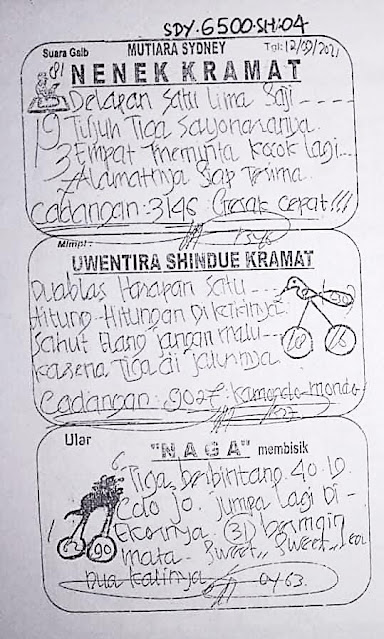 SDY.6500.SH.04
Suara Gaib MUTIARA SYDNEY Tgl: 12/09/2021
NENEK KRAMAT
Delapan Satu Lima Saji
Tujuh Tiga Sayonaranya
Empat meminta Kocok lagi
Alamatnya Siap Terima
Cadangan: 3146 Gerak cepat!!!
Mimpi :
UWENTIRA SHINDUE KRAMAT
Duablas Harapan Satu
Hitung-Hitungan Dikirinya
Sahut Elang jangan malu
Karena Tiga di jalurnya
Cadangan: 9027
Ular
"NAGA" membisik
Tiga berbintang 40.19
Colo jo. jumpa lagi Di-
Ekornya (31) bermain
mata Sweet,, Sweet,,
Dua Kalinya 0463.